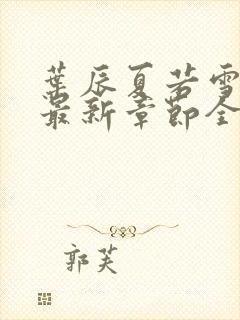 葉辰夏若雪
最新章節全
郭芙